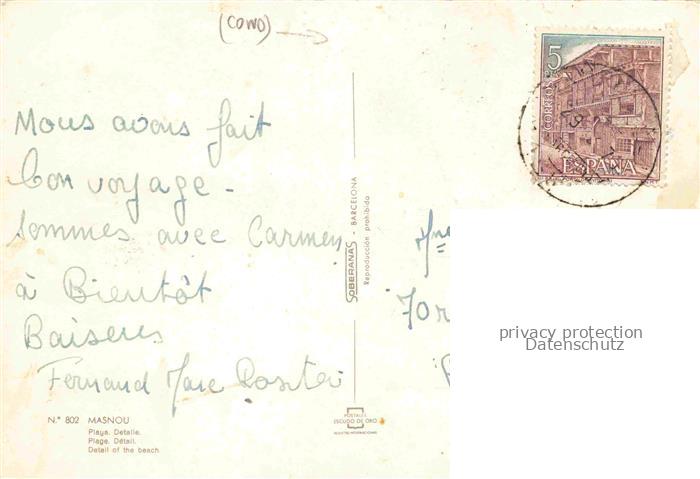 (COWO)
Nous avons fait
bon voyage -
sommes avec Carmen
à Bientôt
Baisers
Fernand
N.° 802 MASNOU
Playa. Detalle.
Plage. Détail.
Detail of the beach
SOBERANAS - BARCELONA
Reproducción prohibida
POSTALES
ESCUDO DE ORO
5
CORREOS
ESPAÑA
privacy protection
Datenschutz